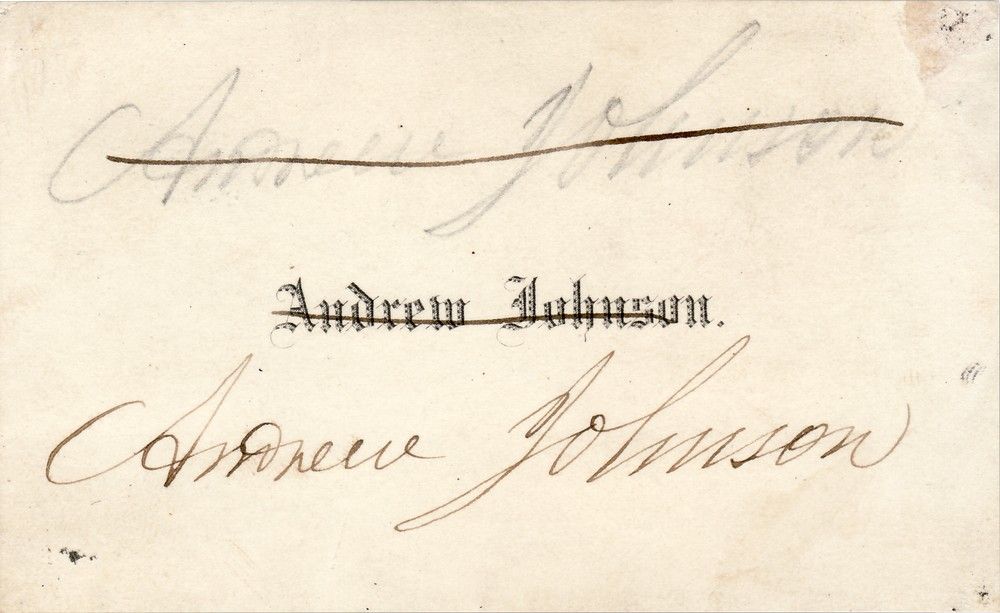 Andrew Johnson
Andrew Johnson.
Andrew Johnson